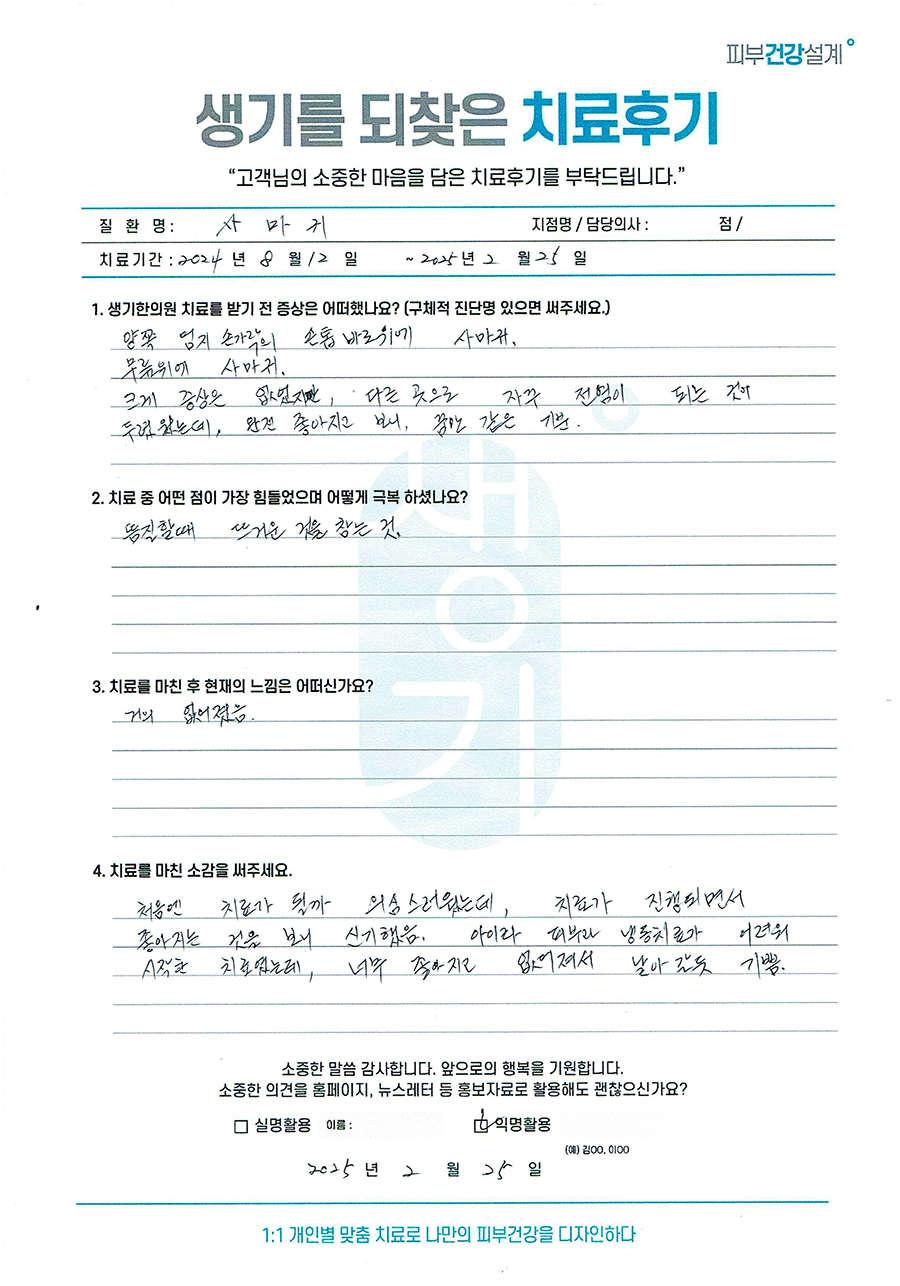 피부건강설계
생기를 되찾은 치료후기
“고객님의 소중한 마음을 담은 치료후기를 부탁드립니다.”
질 환 명 : 사 마 귀 지점명 / 담당의사 : 점 /
치료기간 : 2024 년 8 월 12 일 ~ 2025 년 2 월 25 일
1. 생기한의원 치료를 받기 전 증상은 어떠했나요? (구체적 진단명 있으면 써주세요.)
양쪽 엄지 손가락의 손톱 바로위에 사마귀.
무릎위에 사마귀.
크게 증상은 없었지만, 다른 곳으로 자꾸 전염이 되는 것이
두려웠는데, 완전 좋아지고 보니, 꿈만 같은 기분.
2. 치료 중 어떤 점이 가장 힘들었으며 어떻게 극복 하셨나요?
뜸질할때 뜨거운 것을 참는 것.
3. 치료를 마친 후 현재의 느낌은 어떠신가요?
거의 없어졌음.
4. 치료를 마친 소감을 써주세요.
처음엔 치료가 될까 의심스러웠는데, 치료가 진행되면서
좋아지는 것을 보니 신기했음. 아이라 피부라 냉동치료가 어려워
시작한 치료였는데, 너무 좋아지고 없어져서 날아 갈듯 기쁨.
생기
소중한 말씀 감사합니다. 앞으로의 행복을 기원합니다.
소중한 의견을 홈페이지, 뉴스레터 등 홍보자료로 활용해도 괜찮으신가요?
실명활용 이름 : 익명활용
(예) 김OO, 이OO
2025 년 2 월 25 일
1:1 개인별 맞춤 치료로 나만의 피부건강을 디자인하다